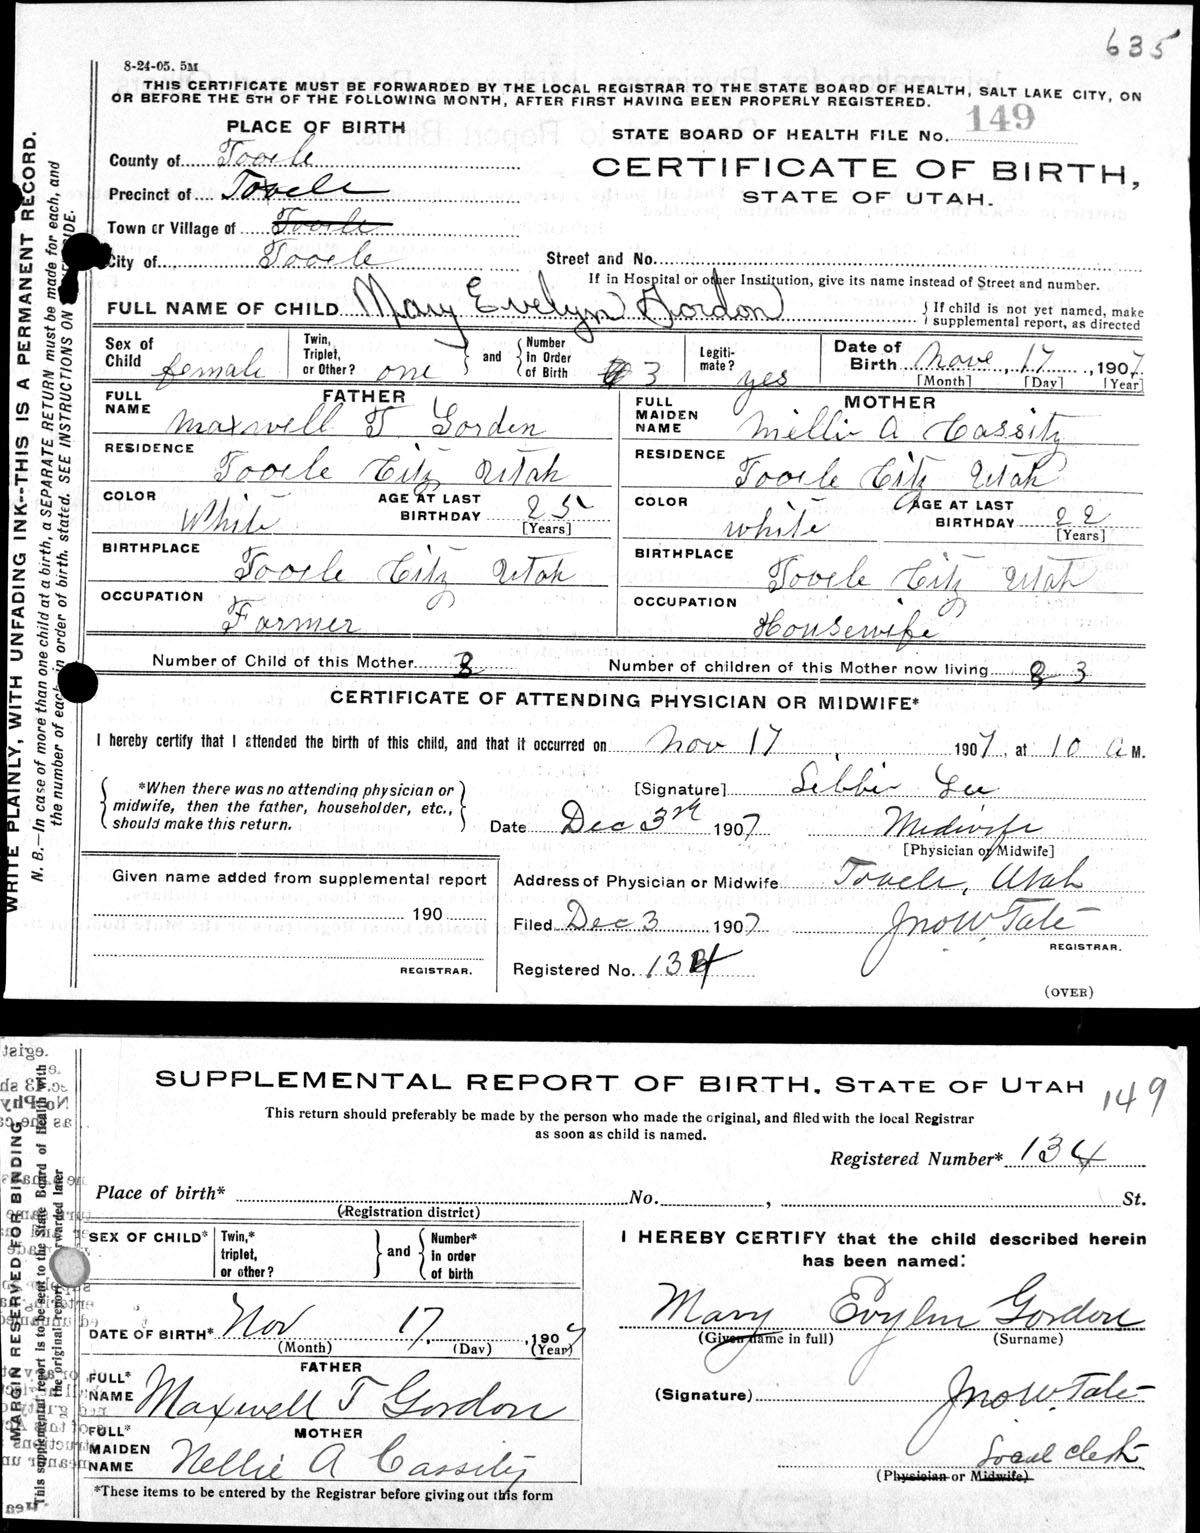 635
8-24-05. 5M
THIS CERTIFICATE MUST BE FORWARDED BY THE LOCAL REGISTRAR TO THE STATE BOARD OF HEALTH, SALT LAKE CITY, ON
OR BEFORE THE 5TH OF THE FOLLOWING MONTH, AFTER FIRST HAVING BEEN PROPERLY REGISTERED.
PLACE OF BIRTH
STATE BOARD OF HEALTH FILE No. 149
County of Tooele
CERTIFICATE OF BIRTH,
Precinct of Tooele
STATE OF UTAH.
Town or Village of Tooele
City of Tooele
Street and No.
If in Hospital or other Institution, give its name instead of Street and number.
FULL NAME OF CHILD Mary Evelyn Gordon
{ If child is not yet named, make
supplemental report, as directed
Sex of Child female
Twin, Triplet, or Other? one } and { Number in Order of Birth 3
Legitimate? yes
Date of Birth Nove, 17, 1907
[Month] [Day] [Year]
FATHER
FULL NAME Maxwell T Gorden
RESIDENCE Tooele City Utah
COLOR White
AGE AT LAST BIRTHDAY 25
[Years]
BIRTHPLACE Tooele City Utah
OCCUPATION Farmer
MOTHER
FULL MAIDEN NAME Millie A Cassity
RESIDENCE Tooele City Utah
COLOR white
AGE AT LAST BIRTHDAY 22
[Years]
BIRTHPLACE Tooele City Utah
OCCUPATION Housewife
Number of Child of this Mother 3
Number of children of this Mother now living 3
CERTIFICATE OF ATTENDING PHYSICIAN OR MIDWIFE*
I hereby certify that I attended the birth of this child, and that it occurred on Nov 17, 1907, at 10 a M.
{ *When there was no attending physician or
midwife, then the father, householder, etc.,
should make this return. }
[Signature] Libbie Lee
Date Dec 3rd 1907 Midwife
[Physician or Midwife]
Given name added from supplemental report
190
REGISTRAR.
Address of Physician or Midwife Tooele, Utah
Filed Dec 3 1907 Jno W. Tate
REGISTRAR.
Registered No. 134
(OVER)
WRITE PLAINLY, WITH UNFADING INK--THIS IS A PERMANENT RECORD.
N. B.—In case of more than one child at a birth, a SEPARATE RETURN must be made for each, and
the number of each, in order of birth, stated. SEE INSTRUCTIONS ON SIDE.
SUPPLEMENTAL REPORT OF BIRTH, STATE OF UTAH
149
This return should preferably be made by the person who made the original, and filed with the local Registrar
as soon as child is named.
Registered Number* 134
Place of birth* No. , St.
(Registration district)
SEX OF CHILD*
Twin,* triplet, or other? } and { Number* in order of birth
DATE OF BIRTH* Nov 17, 1907
(Month) (Day) (Year)
FATHER
FULL* NAME Maxwell T Gordon
MOTHER
FULL* MAIDEN NAME Nellie A Cassity
*These items to be entered by the Registrar before giving out this form
I HEREBY CERTIFY that the child described herein
has been named:
Mary Evylin Gordon
(Given name in full) (Surname)
(Signature) Jno W. Tate
Local clerk
(Physician or Midwife)
MARGIN RESERVED FOR BINDING
This supplemental report is to be sent to the State Board of Health with
the original report, forwarded later